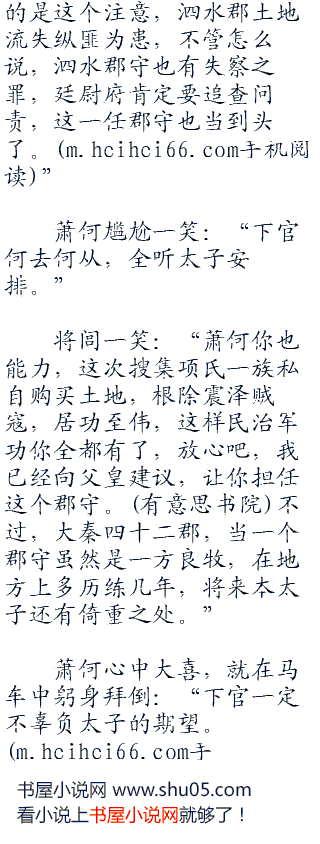 的是这个注意，泗水郡土地
流失纵匪为患，不管怎么
说，泗水郡守也有失察之
罪，廷尉府肯定要追查问
责，这一任郡守也当到头
了。(m.hcihci66.com手机阅
读)”
萧何尴尬一笑：“下官
何去何从，全听太子安
排。”
将闾一笑：“萧何你也
能力，这次搜集项氏一族私
自购买土地，根除震泽贼
寇，居功至伟，这样民治军
功你全都有了，放心吧，我
已经向父皇建议，让你担任
这个郡守。(有意思书院)不
过，大秦四十二郡，当一个
郡守虽然是一方良牧，在地
方上多历练几年，将来本太
子还有倚重之处。”
萧何心中大喜，就在马
车中躬身拜倒：“下官一定
不辜负太子的期望。
(m.hcihci66.com手
书屋小说网 www.shu05.com
看小说上书屋小说网就够了！